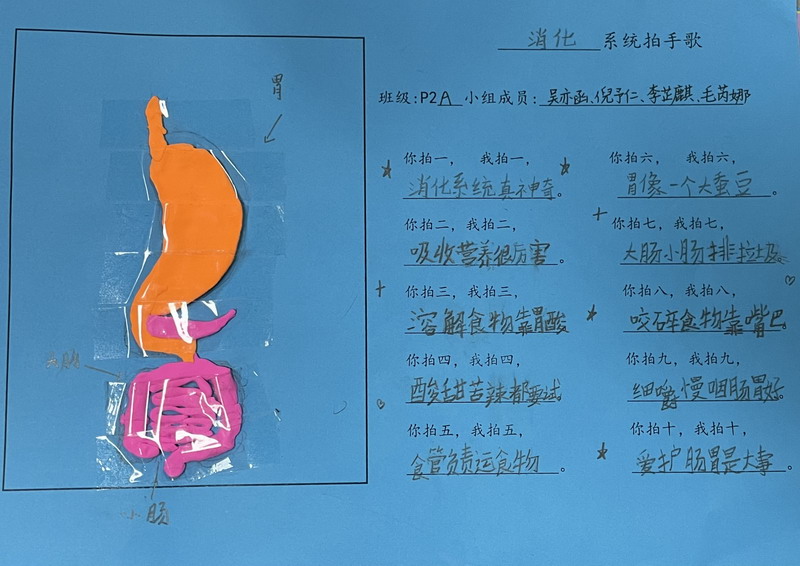 消化 系统拍手歌
班级:P2A 小组成员:吴亦函、倪予仁、李芷麒、毛芮娜
胃
大肠
小肠
你拍一，我拍一，
消化系统真神奇。
你拍二，我拍二，
吸收营养很厉害。
你拍三，我拍三，
溶解食物靠胃酸
你拍四，我拍四，
酸甜苦辣都要试
你拍五，我拍五，
食管负责运食物。
你拍六，我拍六，
胃像一个大蚕豆。
你拍七，我拍七，
大肠小肠排垃圾。
你拍八，我拍八，
咬碎食物靠嘴巴。
你拍九，我拍九，
细嚼慢咽肠胃好。
你拍十，我拍十，
爱护肠胃是大事。